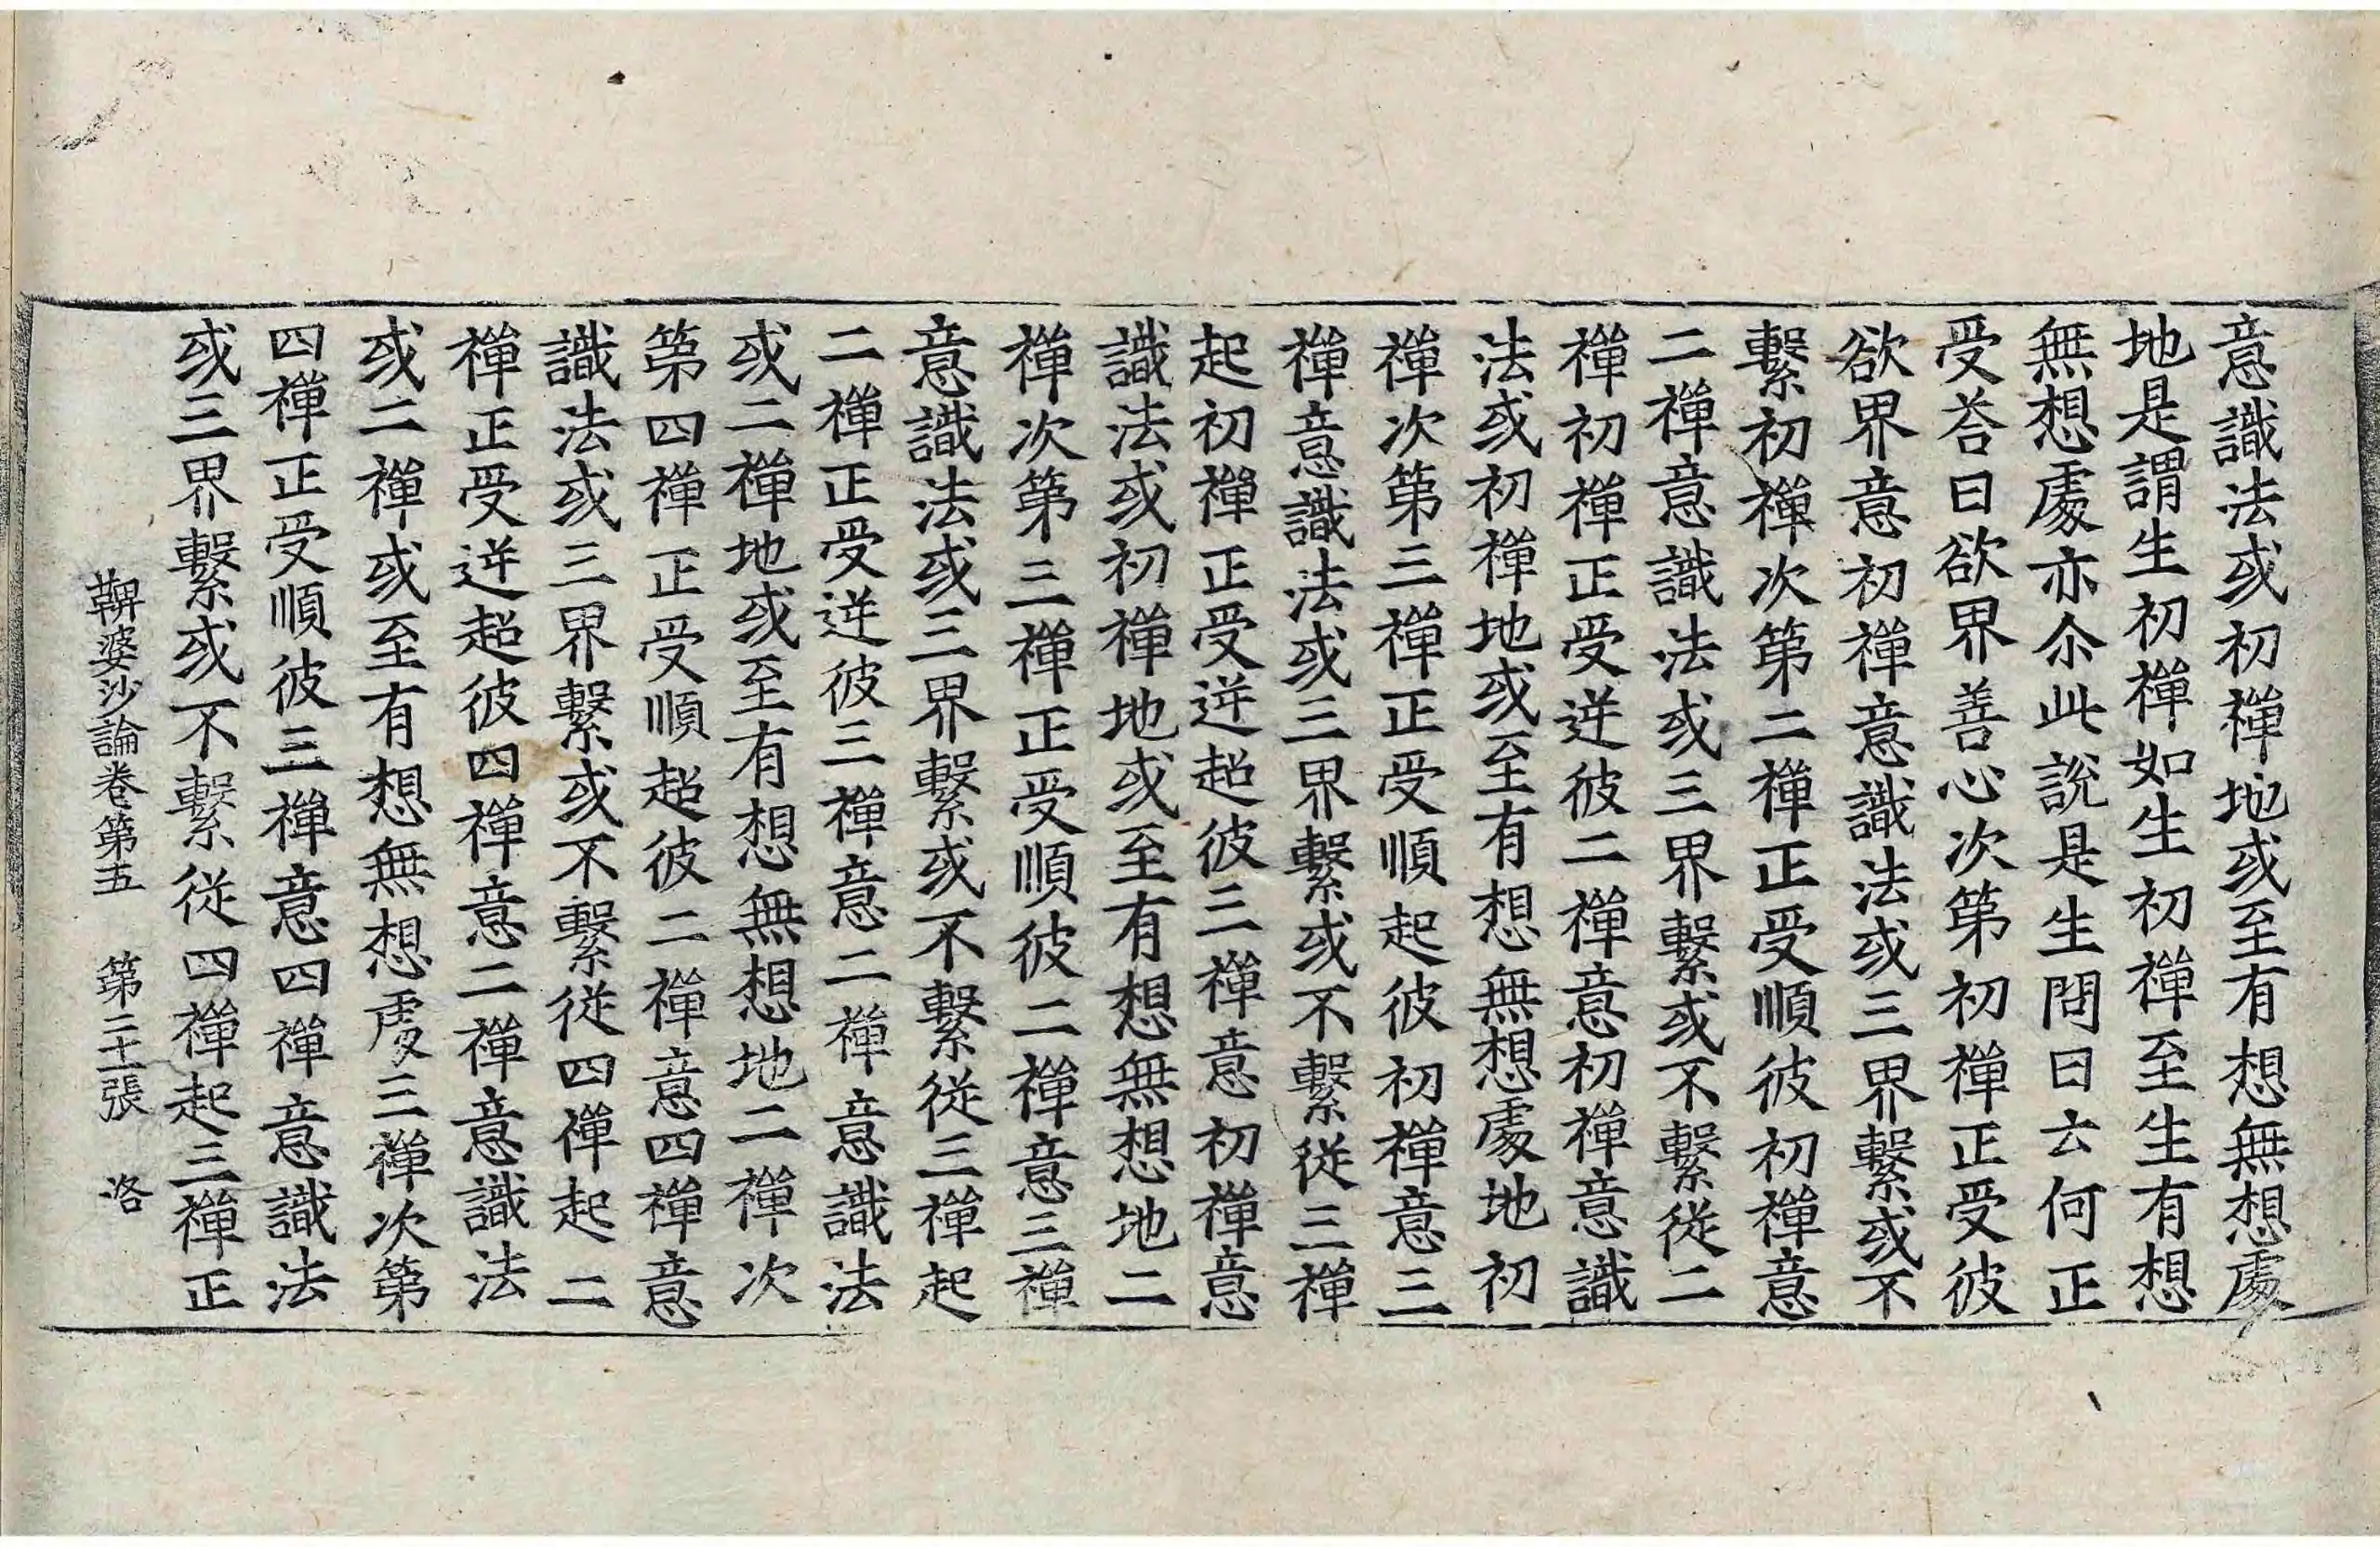 意識法或初禪地或至有想無想處
地是謂生初禪如生初禪至生有想
無想處亦尒此說是生問曰云何正
受荅曰欲界善心次第初禪正受彼
欲界意初禪意識法或三界繫或不
繫初禪次第二禪正受順彼初禪意
二禪意識法或三界繫或不繫從二
禪初禪正受逆彼二禪意初禪意識
法或初禪地或至有想無想處地初
禪次第三禪正受順起彼初禪意三
禪意識法或三界繫或不繫從三禪
起初禪正受逆超彼三禪意初禪意
識法或初禪地或至有想無想地二
禪次第三禪正受順彼二禪意三禪
意識法或三界繫或不繫從三禪起
二禪正受逆彼三禪意二禪意識法
或二禪地或至有想無想地二禪次
第四禪正受順超彼二禪意四禪意
識法或三界繫或不繫從四禪起二
禪正受逆超彼四禪意二禪意識法
或二禪或至有想無想處三禪次第
四禪正受順彼三禪意四禪意識法
或三界繫或不繫從四禪起三禪正
鞞婆沙論卷第五 第二十一張 洛